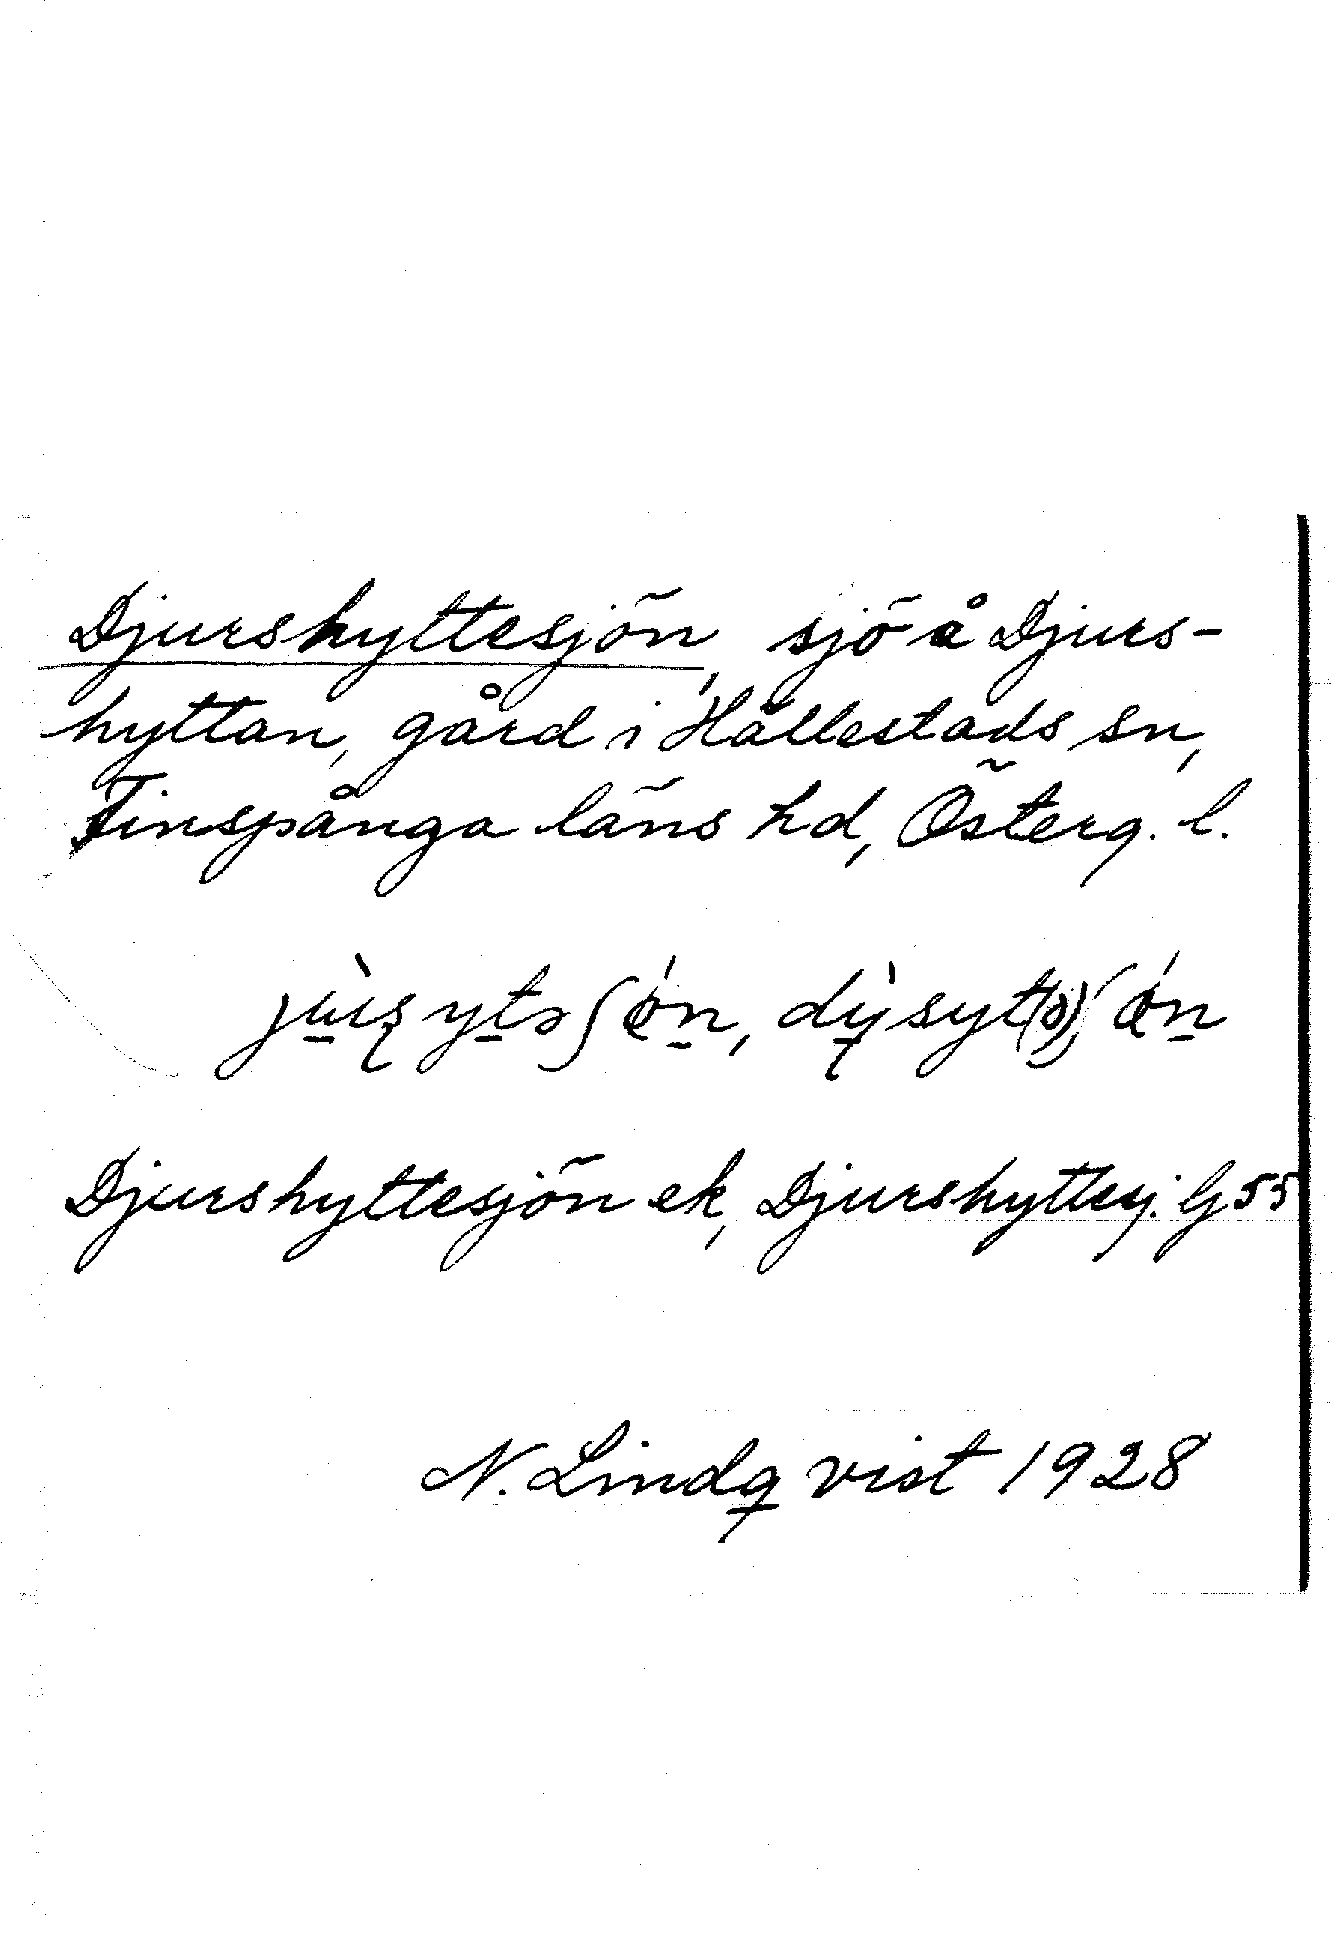 Djurshyttesjön, sjö å Djurs-
hyttan, gård i Hällestads sn,
Finspånga läns hd, Österg. l.
Djurshyttesjön ek, Djurshyttesj. G 55
N. Lindqvist 1928